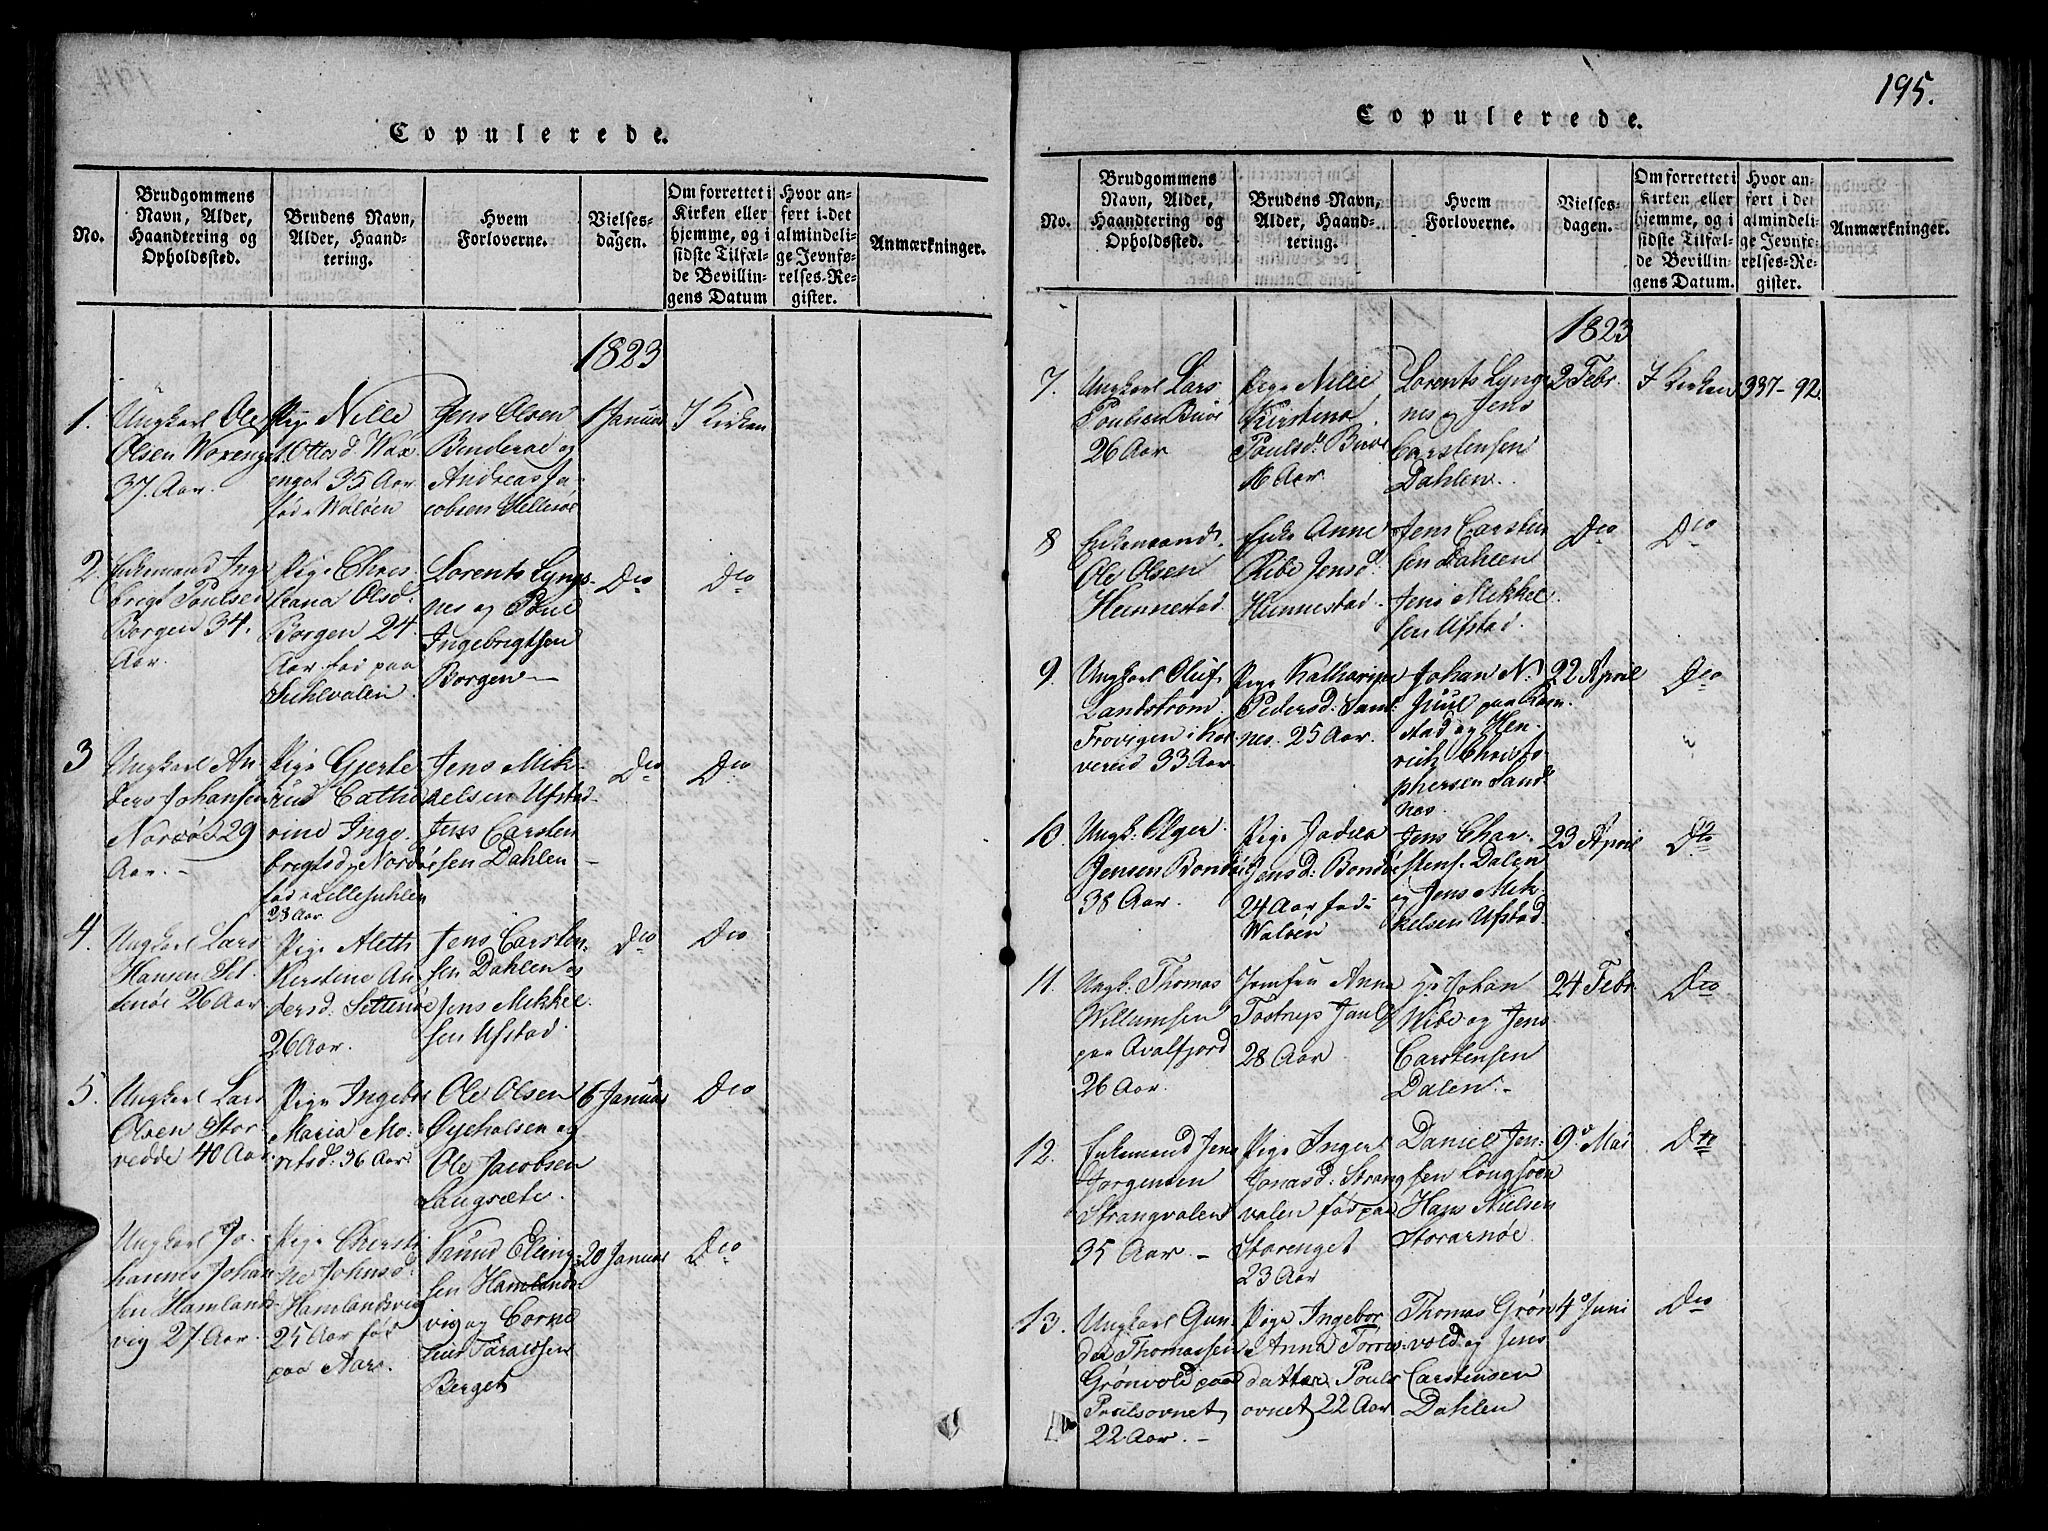 195.
Copulerede.
No.
Brudgommens
Navn, Alder,
Haandtering og
Opholdssted.
Brudens Navn,
Alder, Haand-
tering.
Hvem
Forloverne.
Vielses-
dagen.
Om forrettet i
Kirken eller
hjemme, og i
sidste Tilfæl-
de Bevillin-
gens Datum
Hvor an-
ført i det
almindeli-
ge Jevnfø-
relses-Re-
gister.
Anmærkninger.
1823
1.
Ungkarl Ole
Olsen Woxenget
37. Aar.
Pige Nille
Ottesd. Wox
enget 35 Aar
fød i Waløen
Jens Olsen
Binderøe og
Andreas Ja-
cobsen Hellenøe
1 Januar
I Kirken
2.
Enkemand Inge
brigt Poulsen
Borgen 34.
Aar
Pige Chris
tiana Olsd:
Borgen 24
Aar. fød paa
Lorents Lyngs-
nes og Poul
Ingebrigtsen
Borgen
Do
Do
3
Ungkarl An
ders Johansen
Norøe 29
Aar. -
Pige Gjerte
rud Cathe
rine Inge-
brigtsd. Nordøe
fød Lille
23 Aar
Jens Mik-
kelsen Ufstad
Jens Carsten
sen Dahlen
Do
Do
4.
Ungkarl Lars
Hansen Set
tenøe 26 Aar
Pige Aleth
Kerstine An
dersd: Settenøe
26 Aar.
Jens Carsten-
sen Dahlen og
Jens Mikkel
sen Ufstad.
Do
Do
5.
Ungkarl Lars
Olsen Stor
vedde 40 Aar
Pige Ingebor
Maria Mo-
ritsd: 36 Aar
Ole Olsen
Gyeholsen og
Ole Jacobsen
Langsæte.
6 Januar
Do
Ungkarl Jo-
hannes Johan
sen Hamlands-
vig 27 Aar.
Pige Chersti
ne Johnsd
Hamlandsvig
25 Aar fød
paa Aars.
Knud Eling-
sen Hamlands-
vig og Corne
lius Taraldsen
Berget
20 Januar
Do
Copulerede.
No.
Brudgommens
Navn, Alder,
Haandtering og
Opholdssted.
Brudens Navn,
Alder, Haand-
tering.
Hvem
Forloverne.
Vielses-
dagen.
Om forrettet i
Kirken eller
hjemme, og i
sidste Tilfæl-
de Bevillin-
gens Datum.
Hvor an-
ført i det
almindeli-
ge Jevnfø-
relses-Re-
gister.
Anmærkninger.
1823
7.
Ungkarl Lars
Poulsen Buøe
26 Aar
Pige Nille
Kirstena
Poulsd: Buøe
16 Aar
Lorents Lyngs
nes og Jens
Carstensen
Dahlen.
2 Febr.
I Kirken
337-92.
8
Enkemand
Ole Olsen
Hennestad
Enke Anne
Ribe Jensd:
Hennestad.
Jens Carsten
sen Dahlen
Jens Mikkel
sen Ufstad.
Do
Do
9.
Ungkarl Oluf
Landstrøm
Frovigen i Kor
verud 33 Aar
Pige Katharine
Pedersd: Sand-
nes. 25 Aar.
Johan N:
Juul paa Ram
stad og Hen-
rich Christo
phersen Sand
næs.
22 April
Do
10.
Ungk. Elger
Jensen Bondøe
38 Aar.
Pige Jadea
Jensd: Bondøe
24 Aar fød
Waløen
Jens Char-
stens. Dalen
og Jens Mik-
kelsen Ufstad.
23 April
Do
11.
Ungk. Thomas
Willumsen
paa Qvalfjord
26 Aar.
Jomfru Anna
Tostrup Jaul
28 Aar
Hr Johan
Wibe og Jens
Carstensen
Dalen. -
24 Febr.
Do
12.
Enkemand Jens
Jørgensen
Strangvalen
35 Aar. -
Pige Inger
Jonasd: Strang
valen fød paa
Storenget
23 Aar
Daniel Jen-
sen Longsøen
Hans Nielsen
Storarnøe.
9de Mai
Do
13.
Ungkarl Gun-
der Thomassen
Grønvold paa
Poulsovnet
22 Aar. -
Pige Ingebor
Anna Torris
datter Pouls
ovnet 22 Aar
Thomas Grøn
vold og Jens
Carstensen
Dahlen
4de Juni
Do